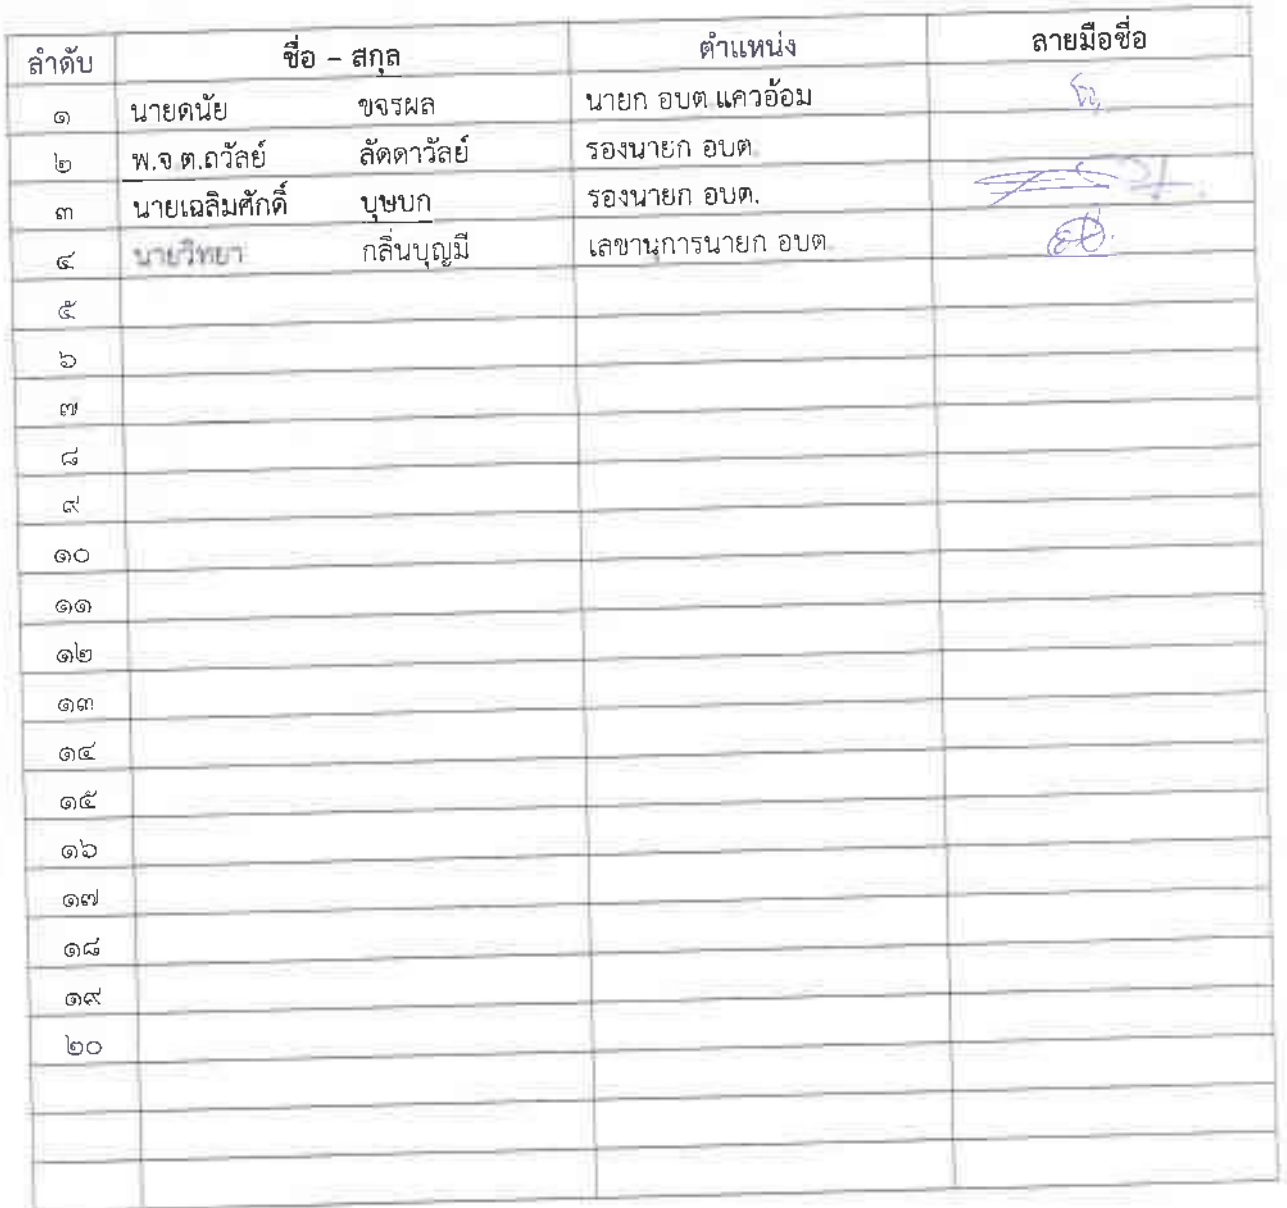 ลำดับ ชื่อ - สกุล ตำแหน่ง ลายมือชื่อ
๑ นายดนัย ขจรผล นายก อบต แควอ้อม
๒ พ.จ.ต.ถวัลย์ ลัดดาวัลย์ รองนายก อบต.
๓ นายเฉลิมศักดิ์ บุษบก รองนายก อบต.
๔ นายวิทยา กลิ่นบุญมี เลขานุการนายก อบต
๕
๖
๗
๘
๙
๑๐
๑๑
๑๒
๑๓
๑๔
๑๕
๑๖
๑๗
๑๘
๑๙
๒๐